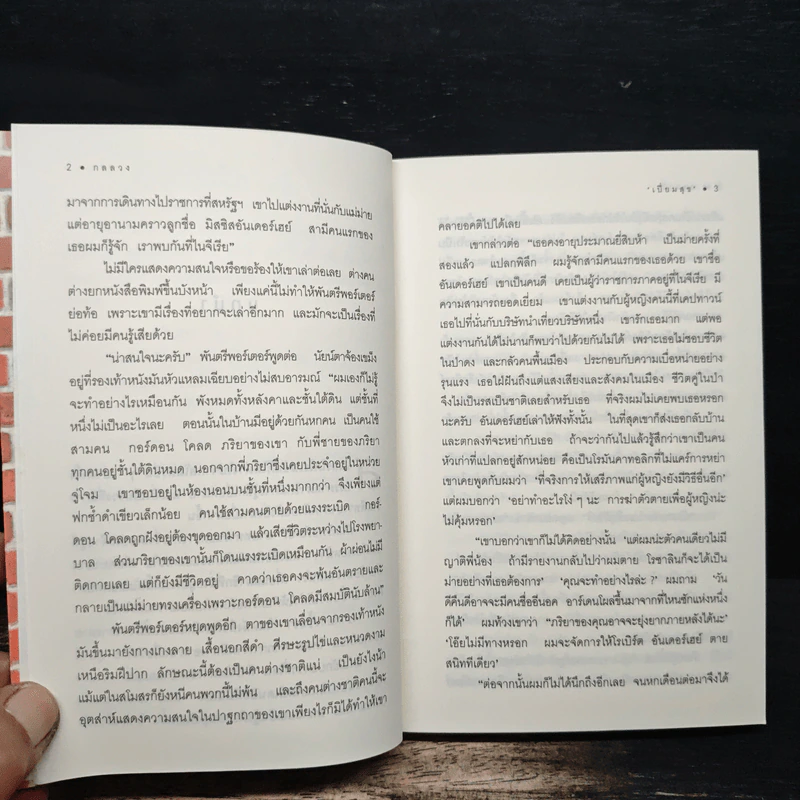 2 • กลลวง
มาจากการเดินทางไปราชการที่สหรัฐฯ เขาไปแต่งงานที่นั่นกับแม่ม่าย
แต่อายุอานามคราวลูกชื่อ มิสซิสอันเดอร์เฮย์ สามีคนแรกของ
เธอผมก็รู้จัก เราพบกันที่ไนจีเรีย”
ไม่มีใครแสดงความสนใจหรือขอร้องให้เขาเล่าต่อเลย ต่างคน
ต่างยกหนังสือพิมพ์ขึ้นบังหน้า เพียงแค่นี้ไม่ทำให้พันตรีพอร์เตอร์
ย่อท้อ เพราะเขามีเรื่องที่อยากจะเล่าอีกมาก และมักจะเป็นเรื่องที่
ไม่ค่อยมีคนรู้เสียด้วย
“น่าสนใจนะครับ” พันตรีพอร์เตอร์พูดต่อ นัยน์ตาจ้องเขม็ง
อยู่ที่รองเท้าหนังมันหัวแหลมเฉียบอย่างไม่สบอารมณ์ “ผมเองก็ไม่รู้
จะทำอย่างไรเหมือนกัน พังหมดทั้งหลังคาและชั้นใต้ดิน แต่ชั้นที่
หนึ่งไม่เป็นอะไรเลย ตอนนั้นในบ้านมีอยู่ด้วยกันหกคน เป็นคนใช้
สามคน กอร์ดอน โคลด ภริยาของเขา กับพี่ชายของภริยา
ทุกคนอยู่ชั้นใต้ดินหมด นอกจากพี่ภริยาซึ่งเคยประจำอยู่ในหน่วย
จู่โจม เขาชอบอยู่ในห้องนอนบนชั้นที่หนึ่งมากกว่า จึงเพียงแต่
ฟกช้ำดำเขียวเล็กน้อย คนใช้สามคนตายด้วยแรงระเบิด กอร์-
ดอน โคลดถูกฝังอยู่ต้องขุดออกมา แล้วเสียชีวิตระหว่างไปโรงพยา-
บาล ส่วนภริยาของเขานั้นก็โดนแรงระเบิดเหมือนกัน ผ้าผ่อนไม่มี
ติดกายเลย แต่ก็ยังมีชีวิตอยู่ คาดว่าเธอคงจะพ้นอันตรายและ
กลายเป็นแม่ม่ายทรงเครื่องเพราะกอร์ดอน โคลดมีสมบัตินับล้าน”
พันตรีพอร์เตอร์หยุดพูดอีก ตาของเขาเลื่อนจากรองเท้าหนัง
มันขึ้นมายังกางเกงลาย เสื้อนอกสีดำ ศีรษะรูปไข่และหนวดงาม
เหนือริมฝีปาก ลักษณะนี้ต้องเป็นคนต่างชาติแน่ เป็นยังไงน้า
แม้แต่ในสโมสรก็ยังหนีคนพวกนี้ไม่พ้น และถึงคนต่างชาติคนนี้จะ
อุตส่าห์แสดงความสนใจในปาฐกถาของเขาเพียงไรก็มิได้ทำให้เขา
‘เปี่ยมสุข’ • 3
คลายอคติไปได้เลย
เขากล่าวต่อ “เธอคงอายุประมาณยี่สิบห้า เป็นม่ายครั้งที่
สองแล้ว แปลกพิลึก ผมรู้จักสามีคนแรกของเธอด้วย เขาชื่อ
อันเดอร์เฮย์ เขาเป็นคนดี เคยเป็นผู้ว่าราชการภาคอยู่ที่ไนจีเรีย มี
ความสามารถยอดเยี่ยม เขาแต่งงานกับผู้หญิงคนนี้ที่เคปทาวน์
เธอไปที่นั่นกับบริษัทนำเที่ยวบริษัทหนึ่ง เขารักเธอมาก แต่พอ
แต่งงานกันได้ไม่นานก็พบว่าไปด้วยกันไม่ได้ เพราะเธอไม่ชอบชีวิต
ในป่าดง และกลัวคนพื้นเมือง ประกอบกับความเบื่อหน่ายอย่าง
รุนแรง เธอใฝ่ฝันถึงแต่แสงเสียงและสังคมในเมือง ชีวิตคู่ในป่า
จึงไม่เป็นรสเป็นชาติเลยสำหรับเธอ ที่จริงผมไม่เคยพบเธอหรอก
นะครับ อันเดอร์เฮย์เล่าให้ฟังทั้งนั้น ในที่สุดเขาก็ส่งเธอกลับบ้าน
และตกลงที่จะหย่ากับเธอ ถ้าจะว่ากันไปแล้วรู้สึกว่าเขาเป็นคน
หัวเก่าที่แปลกอยู่สักหน่อย คือเป็นโรมันคาทอลิกที่ไม่แคร์การหย่า
เขาเคยพูดกับผมว่า ‘ที่จริงการให้เสรีภาพแก่ผู้หญิงยังมีวิธีอื่นอีก’
แต่ผมบอกว่า ‘อย่าทำอะไรโง่ ๆ นะ การฆ่าตัวตายเพื่อผู้หญิงน่ะ
ไม่คุ้มหรอก’
“เขาบอกว่าเขาก็ไม่ได้คิดอย่างนั้น ‘แต่ผมน่ะตัวคนเดียวไม่มี
ญาติพี่น้อง ถ้ามีรายงานกลับไปว่าผมตาย โรซาลีนก็จะได้เป็น
ม่ายอย่างที่เธอต้องการ’ ‘คุณจะทำอย่างไรล่ะ ?’ ผมถาม ‘วัน
ดีคืนดีก็อาจจะมีคนชื่ออีนอค อาร์เดนโผล่ขึ้นมาจากที่ไหนซักแห่งหนึ่ง
ก็ได้’ ผมท้วงเขาว่า “ภริยาของคุณอาจจะยุ่งยากภายหลังได้นะ’
‘โอ๊ยไม่มีทางหรอก ผมจะจัดการให้โรเบิร์ต อันเดอร์เฮย์ ตาย
สนิททีเดียว’
“ต่อจากนั้นผมก็ไม่ได้นึกถึงอีกเลย จนหกเดือนต่อมาจึงได้